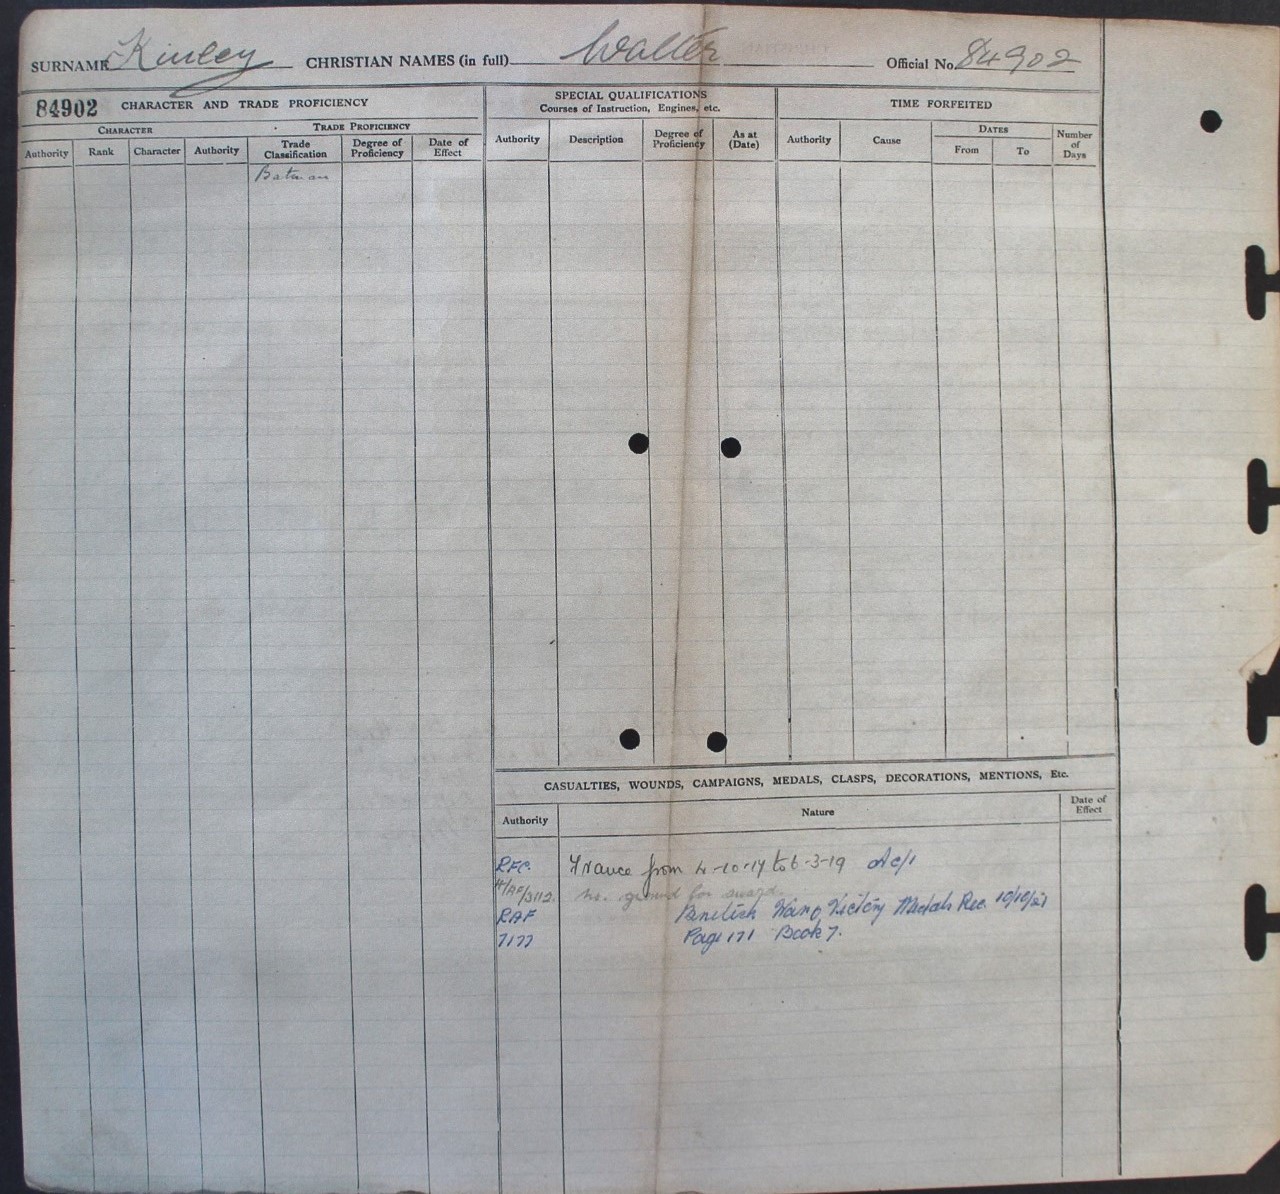 SURNAME Kinley CHRISTIAN NAMES (in full) Walter Official No. 84902
84902 CHARACTER AND TRADE PROFICIENCY
SPECIAL QUALIFICATIONS
Courses of Instruction, Engines, etc.
TIME FORFEITED
CHARACTER TRADE PROFICIENCY
Authority Rank Character Authority Trade Classification Degree of Proficiency Date of Effect
Authority Description Degree of Proficiency As at (Date)
Authority Cause DATES From To Number of Days
Batman
CASUALTIES, WOUNDS, CAMPAIGNS, MEDALS, CLASPS, DECORATIONS, MENTIONS, Etc.
Authority Nature Date of Effect
RFC. France from 4-10-17 to 6-3-19 Ac/1
no. ground for award.
RAF British War & Victory Medals Rec. 10/10/21
7177 Page 171 Book 7.